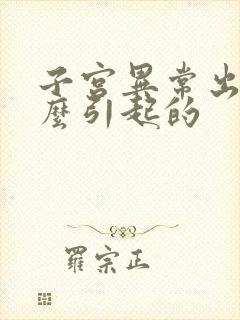 子宮異常出
麼引起的
羅宗正